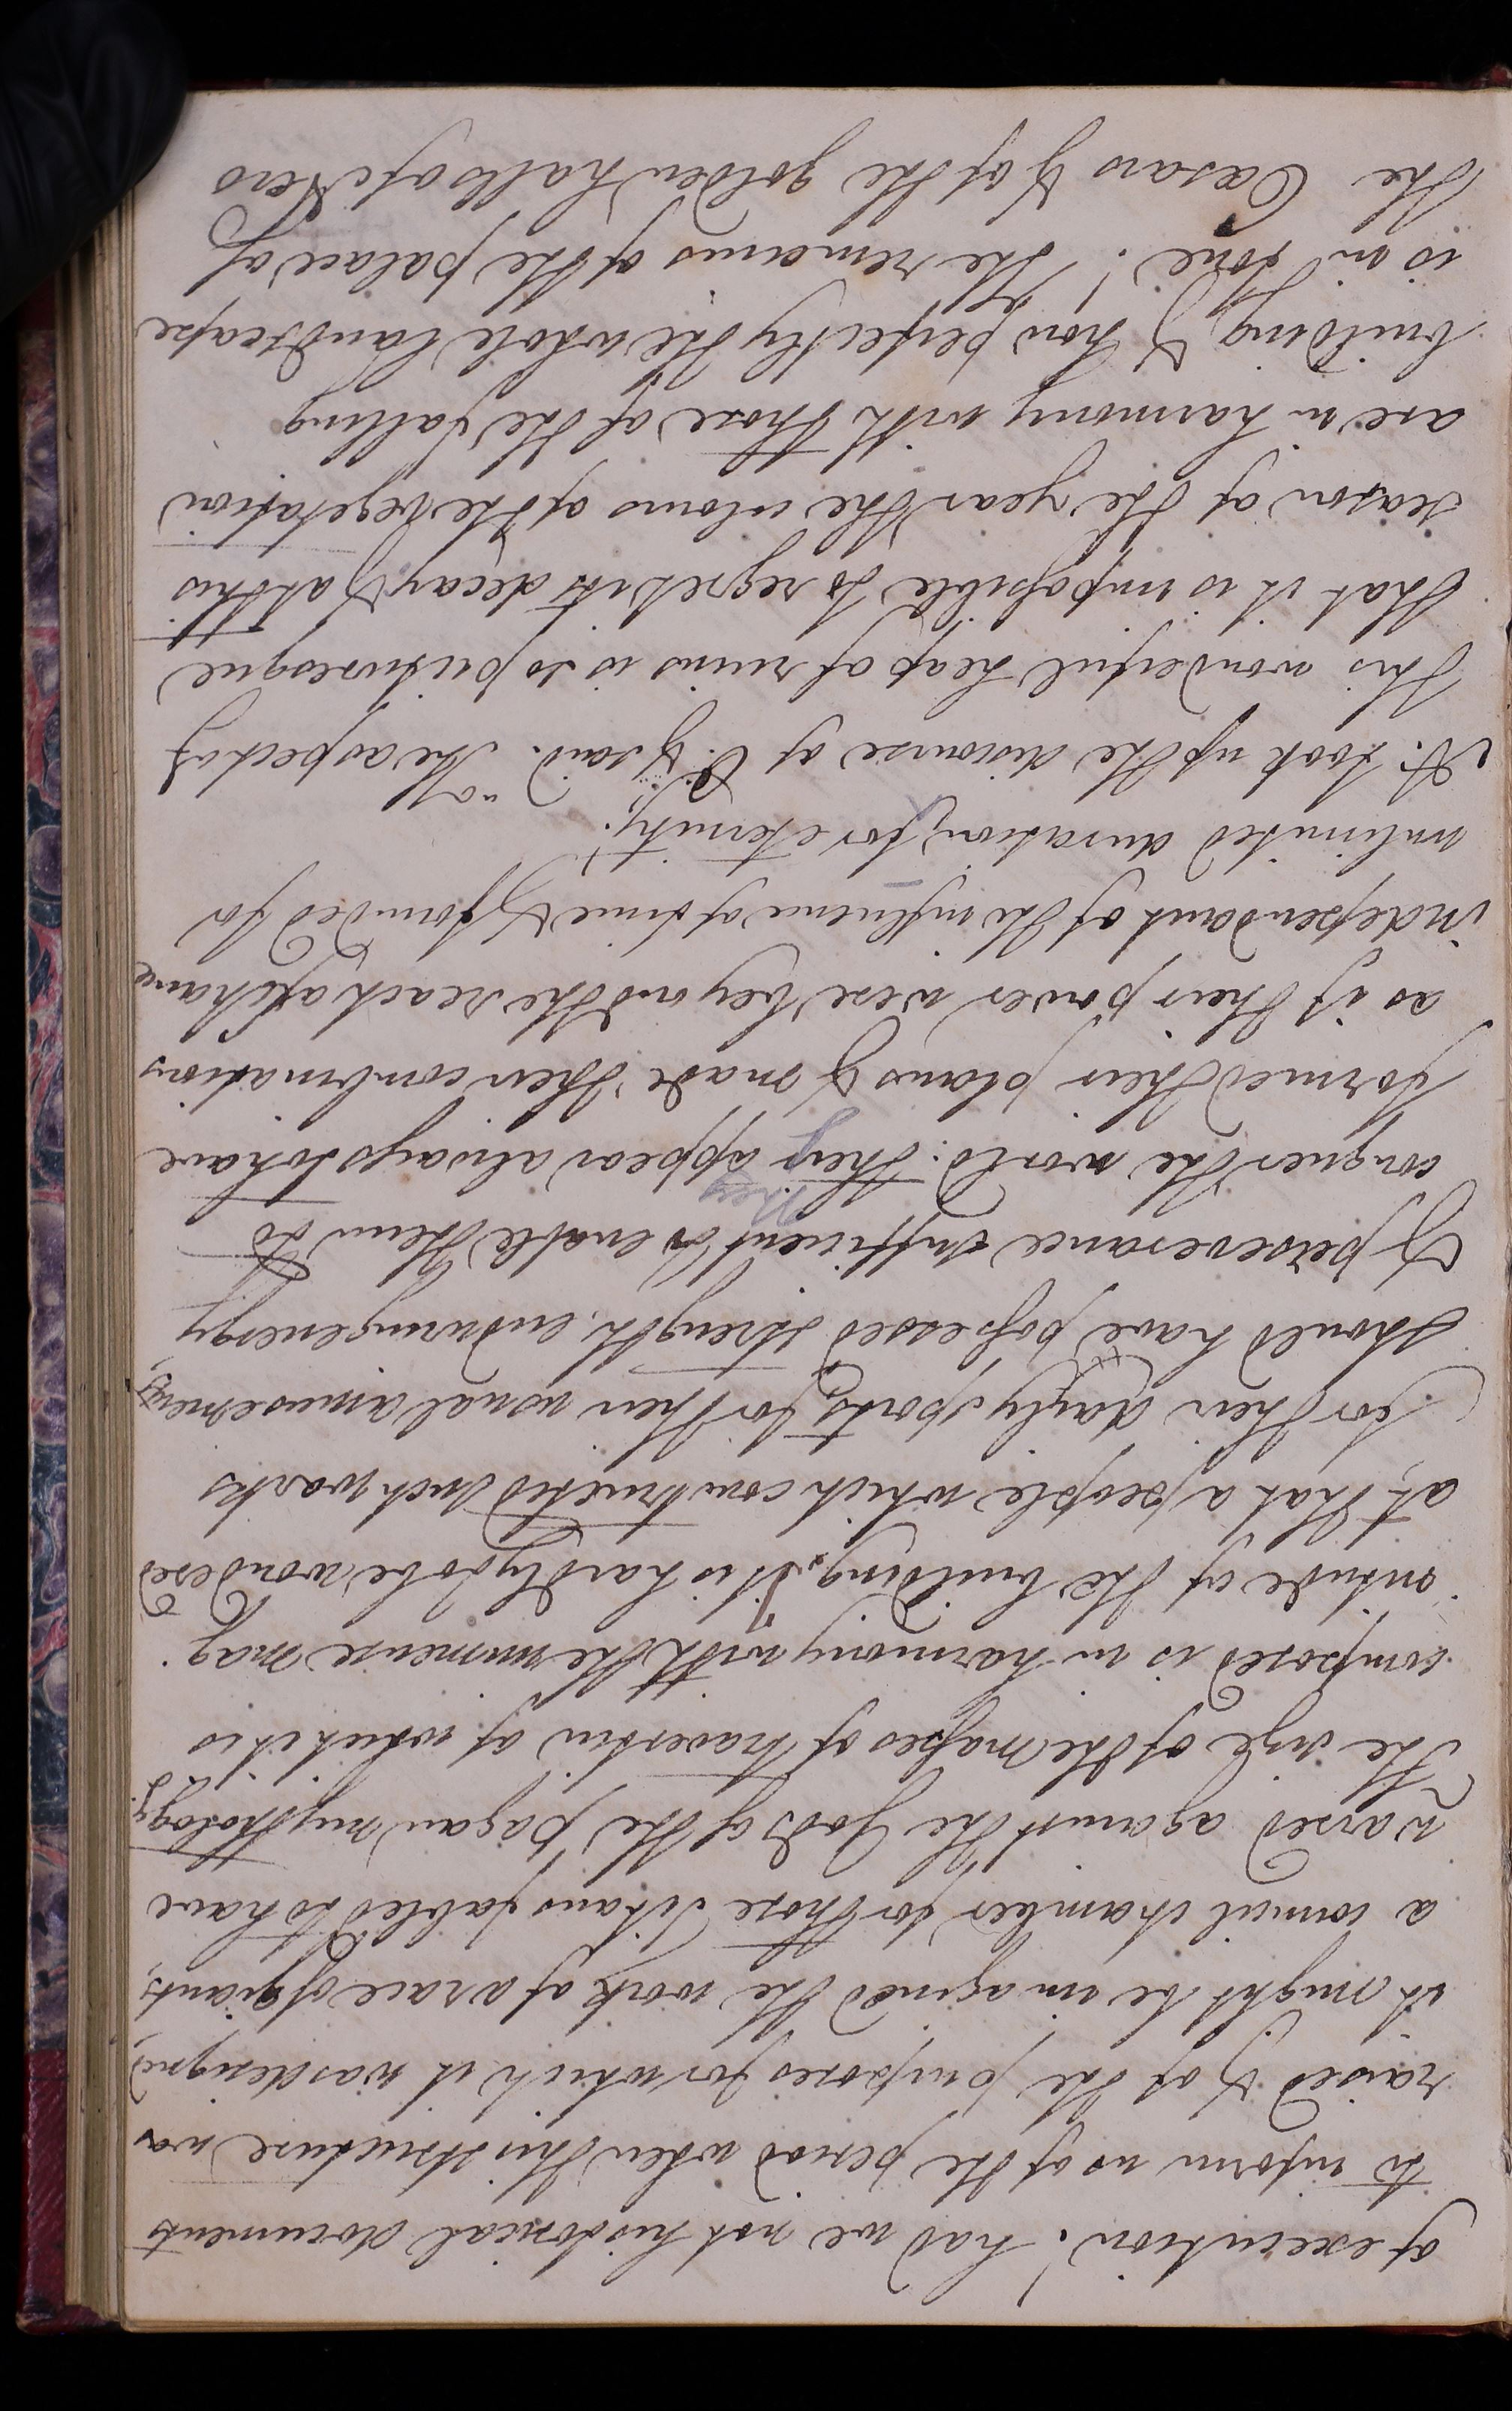 of execution! had we not historical documents
to inform us of the period when this structure was
raised & of the purposes for which it was designed,
it might be imagined the work of a race of giants,
a council chamber for those Titans fabled to have
warred against the Gods of the pagan mythology.
The size of the masses of travertin of which it is
composed is in harmony with the immense mag
nitude of the building. It is hardly to be wondered
at, that a people which constructed such works
for their dayly sports, for their usual amusements,
should have possessed strength, enduring energy
& perseverance sufficient to enable them to
they
conquer the world: they appear always to have
formed their plans & made their combinations
as if their power were beyond the reach of chance
independant of the influence of time & founded for
unlimited duration, for eternity."
A. took up the discourse of C. & said. "The aspect of
this wonderful heap of ruins is so picturesque
that it is impossible to regret its decay & at this
season of the year the colours of the vegetation
are in harmony with those of the falling
building & how perfectly the whole landscape
is in tone! The remains of the palace of
the Cæsars & of the golden halls of Nero